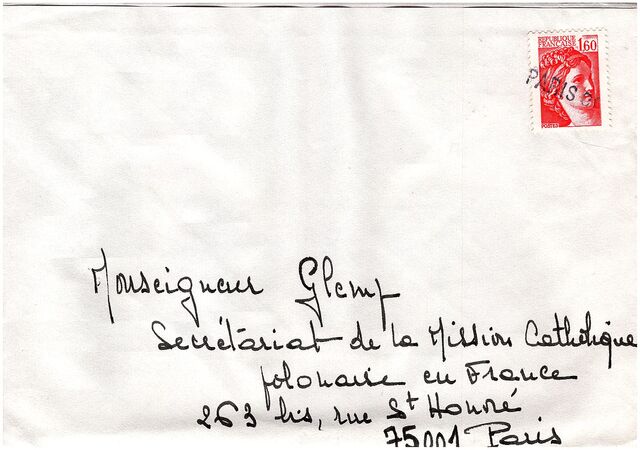 REPUBLIQUE
FRANCAISE 1,60
PARIS
POSTES
Monseigneur Glemp
Secrétariat de la Mission Catholique
polonaise en France
263 bis, rue St Honoré
75001 Paris